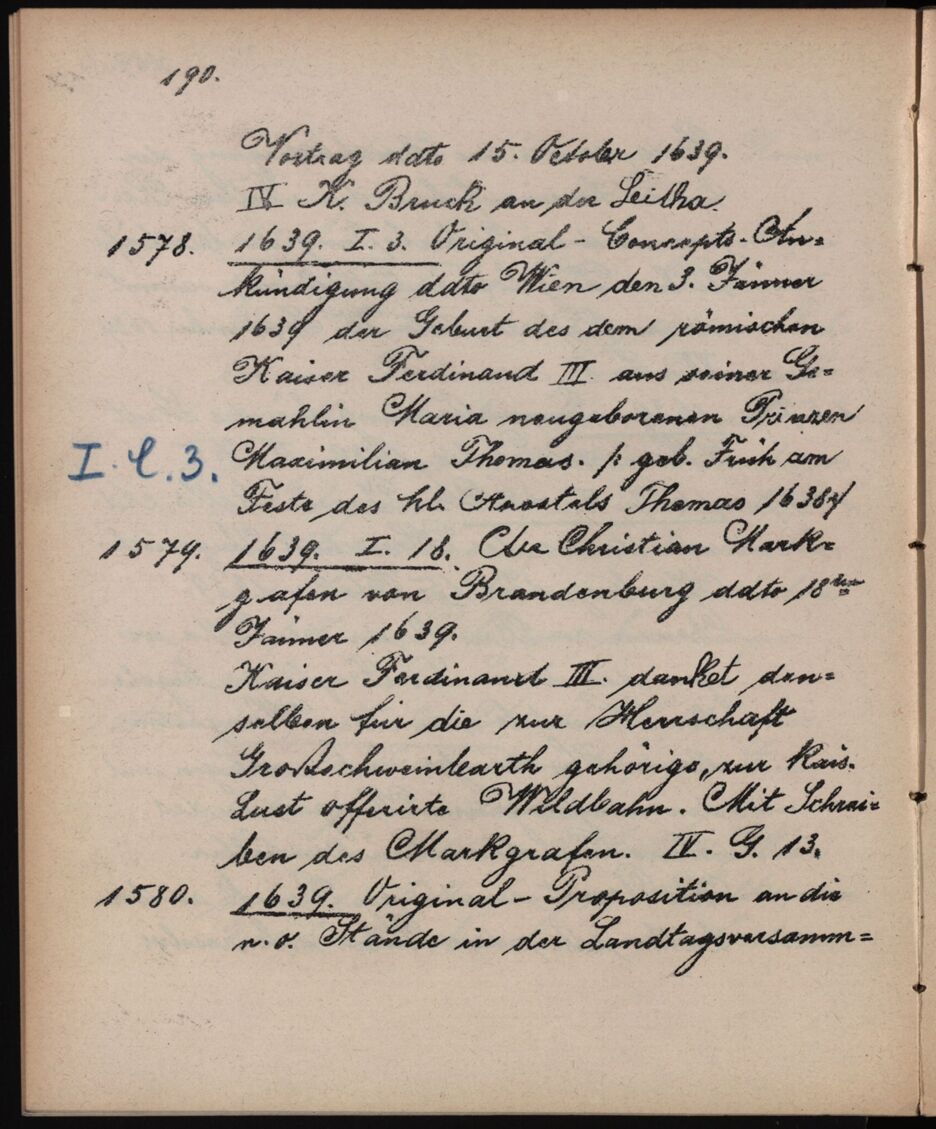 190.
Vortrag ddto 15. October 1639.
IV K. Bruck an der Leitha.
1578. 1639. I. 3. Original - Concepts - An=
kündigung ddto Wien den 3. Jänner
1639 der Geburt des dem römischen
Kaiser Ferdinand III. aus seiner Ge=
mahlin Maria neugeborenen Prinzen
I. C. 3. Maximilian Thomas. /: geb. Früh am
Feste des hl. Apostels Thomas 1638 :/
1579. 1639. I. 18. An Christian Mark=
grafen von Brandenburg ddto 18ten
Jänner 1639.
Kaiser Ferdinand III. danket den=
selben für die zur Herrschaft
Großschweinbarth gehörige, zur kais.
Lust offerirte Wildbahn. Mit Schrei=
ben des Markgrafen. IV. G. 13.
1580. 1639. Original - Proposition an die
n. ö. Stände in der Landtagsversamm=